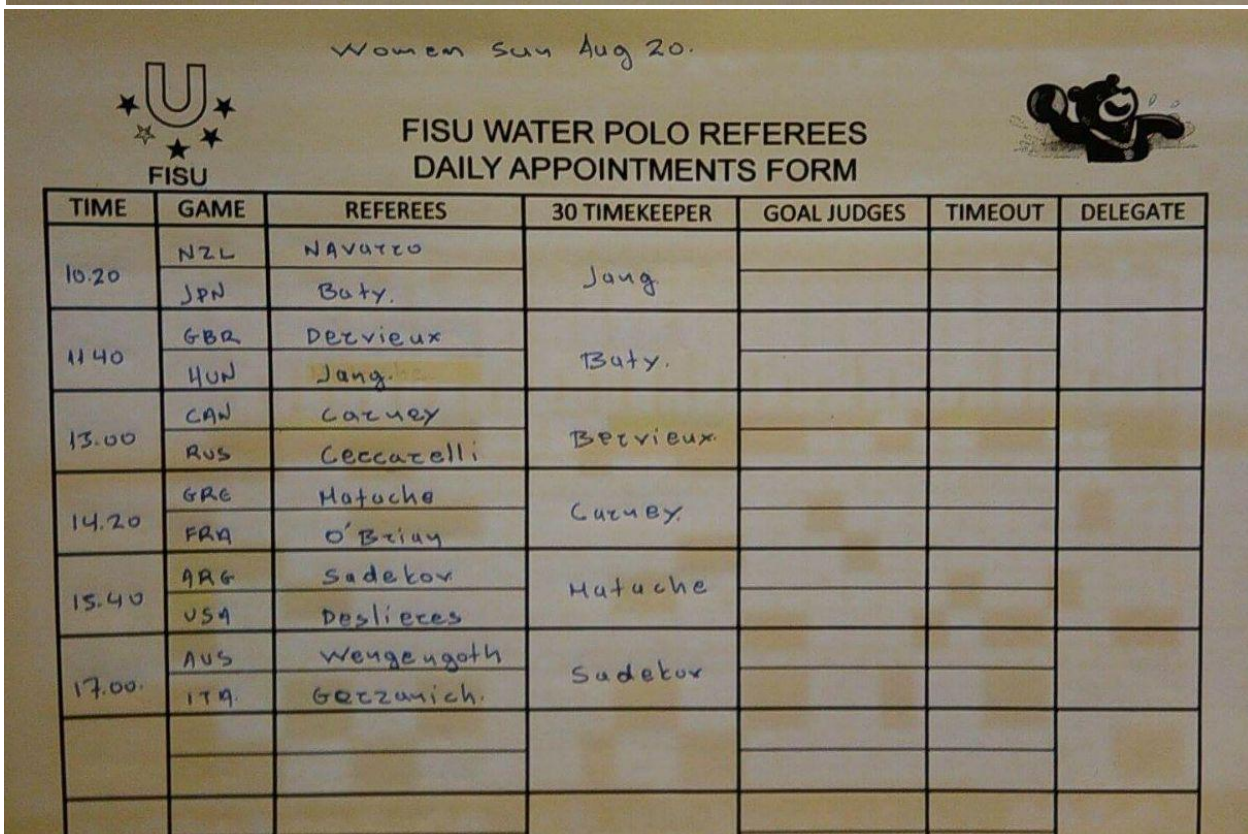 Women Sun Aug 20.
U
FISU
FISU WATER POLO REFEREES
DAILY APPOINTMENTS FORM
TIME GAME REFEREES 30 TIMEKEEPER GOAL JUDGES TIMEOUT DELEGATE
10.20 NZL NAVarro Jang
JPN Baty.
11 40 GBR Dervieux Baty.
HUN Jang.
13.00 CAN Carney Bervieux.
RUS Ceccarelli
14.20 GRE Matache Carney.
FRA O'Brian
15.40 ARG Sadekov Matache
USA Deslieres
17.00. AUS Wengenroth Sadekov
ITA. Gerzanich.